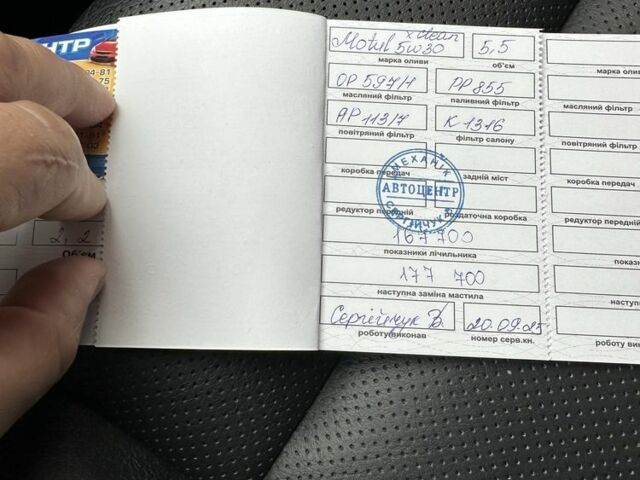 x clean
Motul 5w30 5,5
марка оливи об'єм
OP 597/1 PP 855
масляний фільтр паливний фільтр
AP 113/7 K 1316
повітряний фільтр фільтр салону
коробка передач задній міст
МЕХАНІК
АВТОЦЕНТР
СЕРГІЙЧУК В
редуктор передній роздаточна коробка
167 700
показники лічильника
177 700
наступна заміна мастила
Сергійчук В. 20.09.25
роботу виконав номер серв.кн.
марка оливи
масляний фільтр
повітряний фільтр
коробка передач
редуктор передній
показники
наступна
роботу
НТР
2,2
об'єм